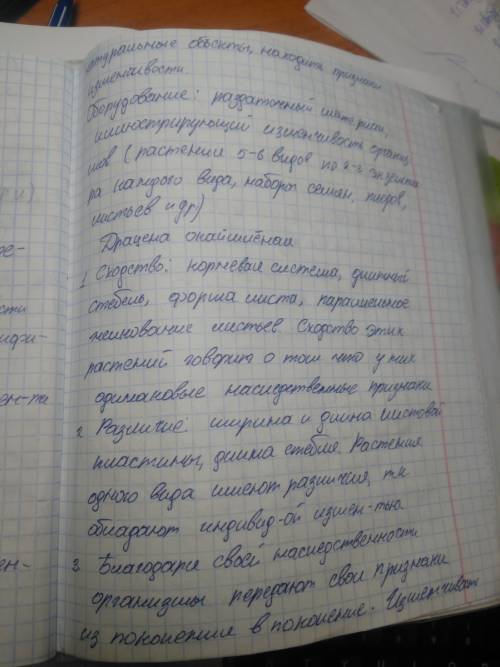 натуральные объекты, находить признаки
изменчивости.
Оборудование: раздаточный материал,
иллюстрирующий изменчивость организ
мов (растения 5-6 видов по 2-3 экземпля
ра каждого вида, наборы семян, плодов,
листьев и др)
Драцена окаймлённая
1. Сходство: корневая система, длинный
стебель, форма листа, параллельное
жилкование листьев. Сходство этих
растений говорит о том что у них
одинаковые наследственные признаки
2. Различие: ширина и длина листовой
пластины, длина стебля. Растения
одного вида имеют различия, т.к
обладают индивид-ой измен-тью.
3. Благодаря своей наследственности
организмы передают свои признаки
из поколения в поколение. Изменчивость
ости
ифи-
ен-ти
ен-